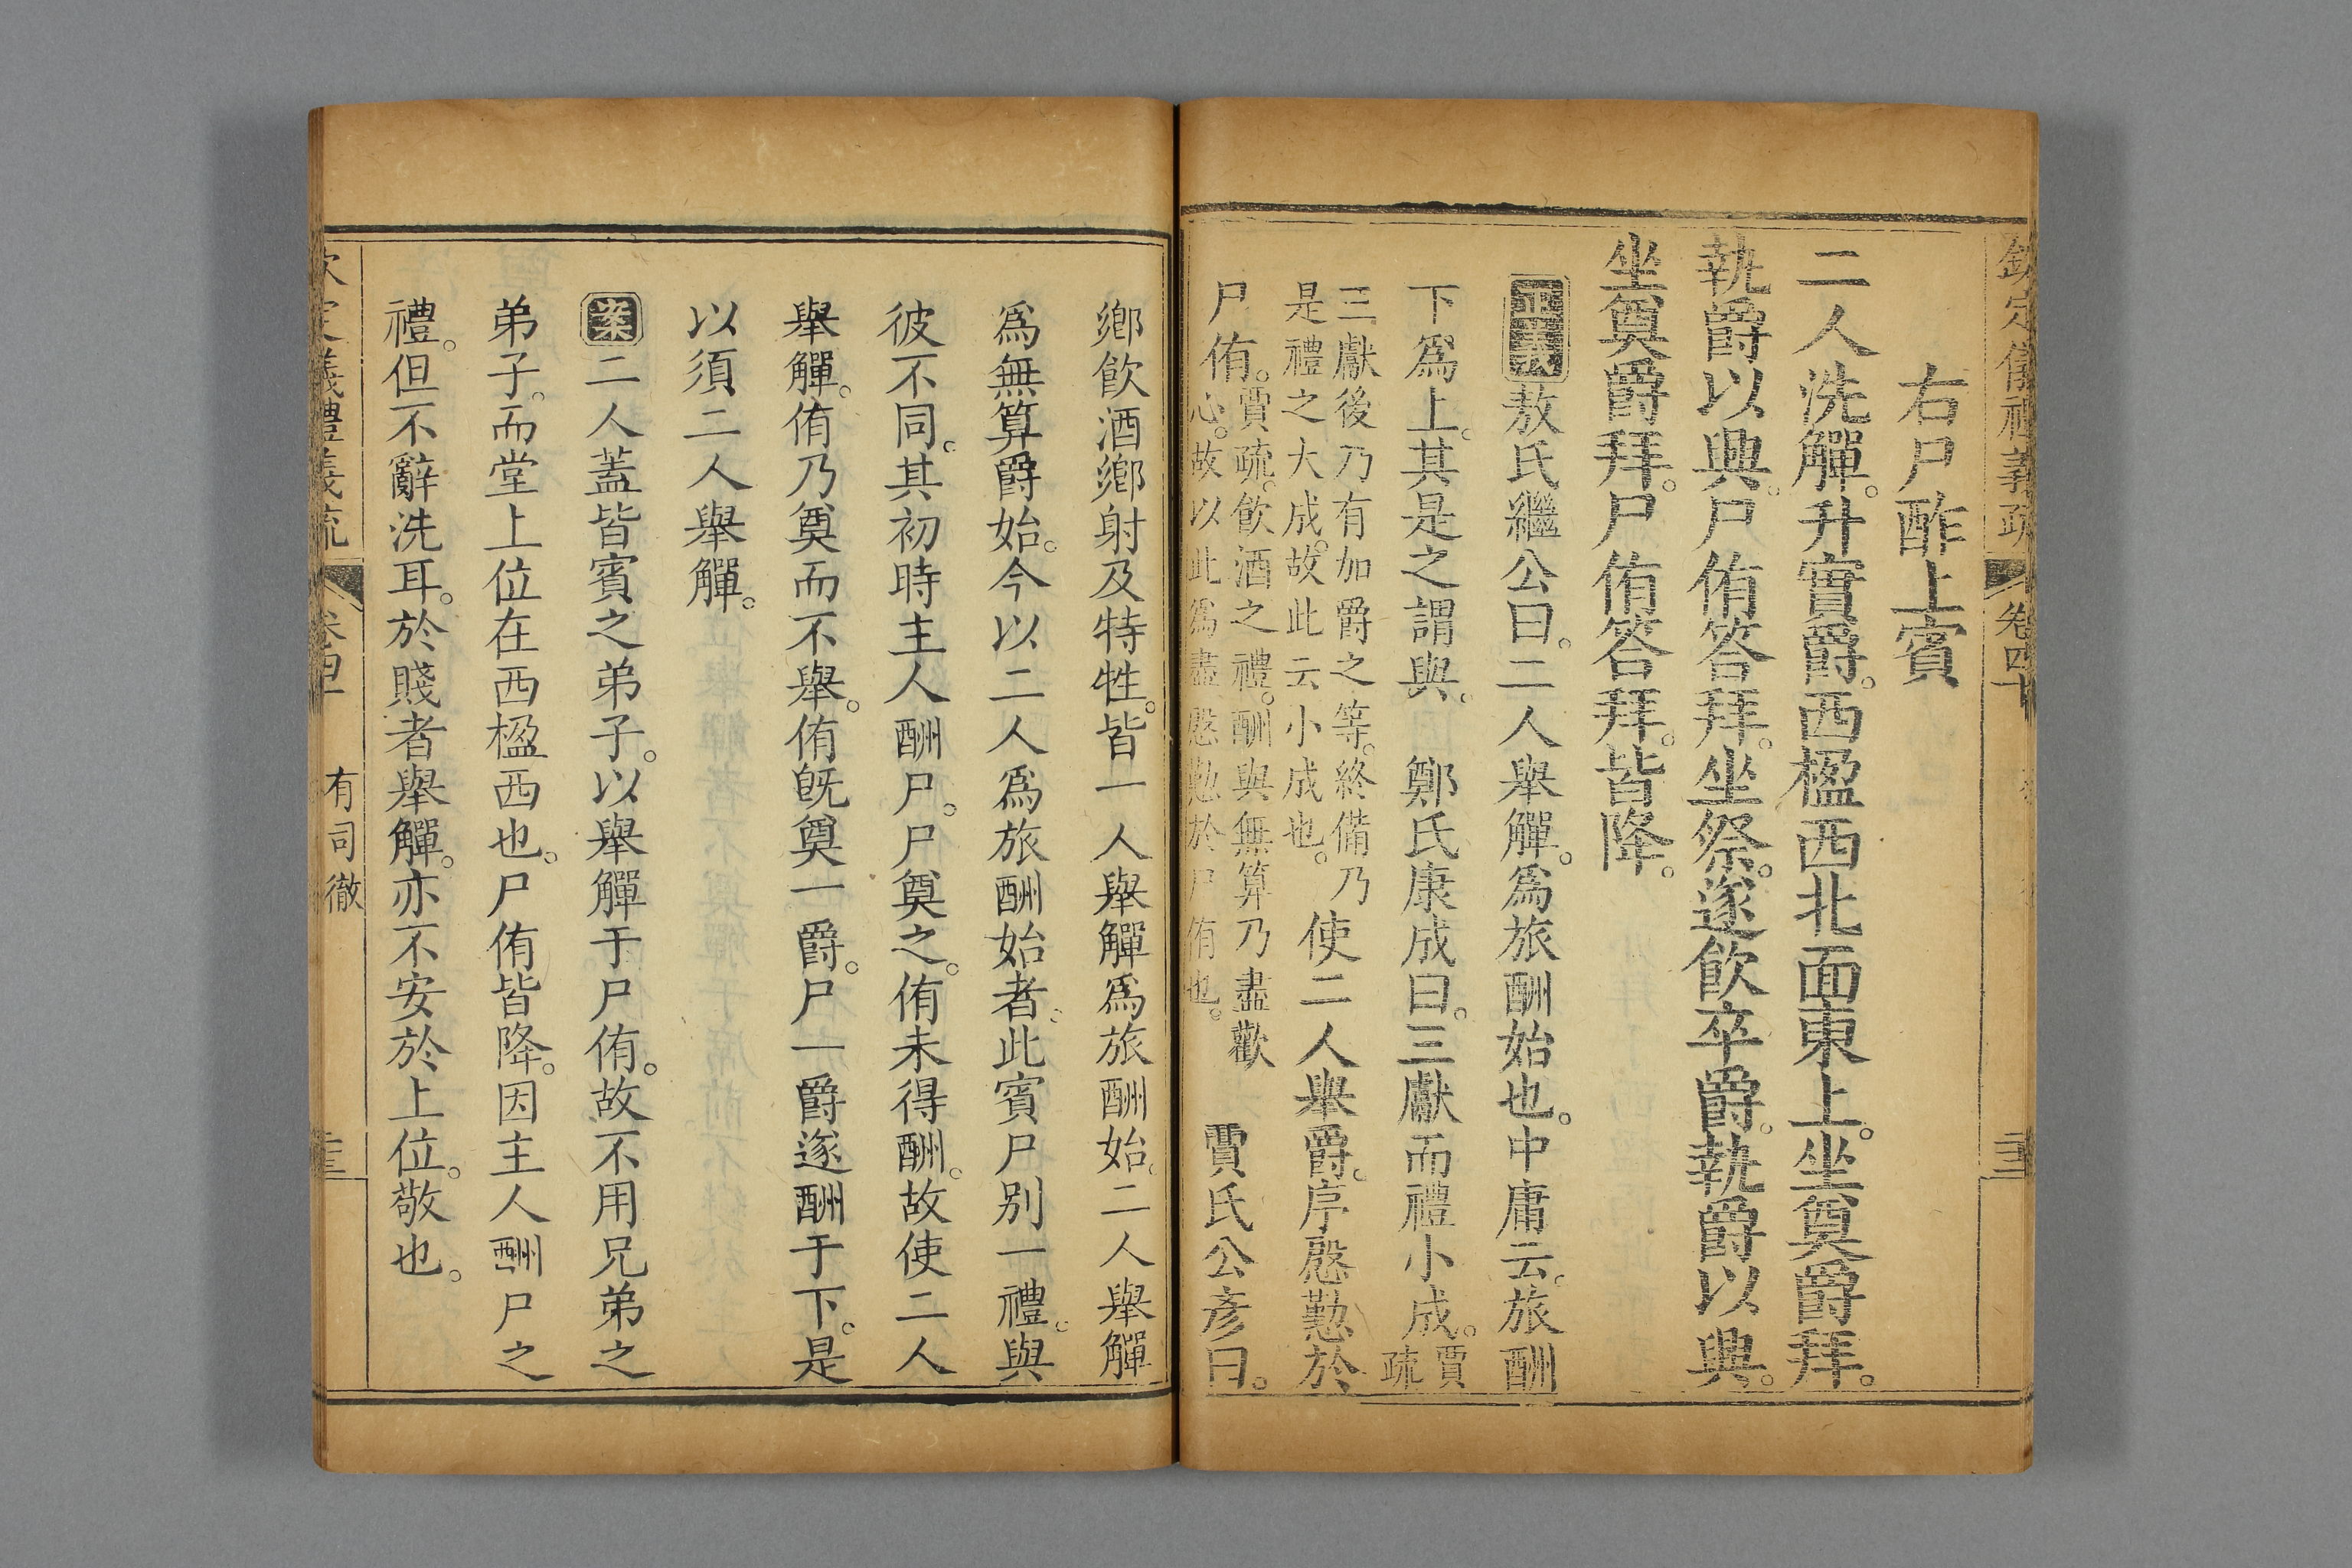 欽定儀禮義疏 卷四十
右尸酢上賓
二人洗觶。升實爵。西楹西北面東上。坐奠爵拜。
執爵以興。尸侑答拜。坐祭。遂飲卒爵。執爵以興。
坐奠爵拜。尸侑答拜。皆降。
正義敖氏繼公曰。二人舉觶。爲旅酬始也。中庸云。旅酬
下爲上。其是之謂與。 鄭氏康成曰。三獻而禮小成。賈疏
三獻後乃有加爵之等。終備乃
是禮之大成。故此云小成也。
使二人舉爵。序慇懃於
尸侑。賈疏。飲酒之禮。酬與無算乃盡歡
心。故以此爲盡慇懃於尸侑也。
賈氏公彥曰。
鄉飲酒鄉射及特牲。皆一人舉觶爲旅酬始。二人舉觶
爲無算爵始。今以二人爲旅酬始者。此賓尸別一禮。與
彼不同。其初時主人酬尸。尸奠之。侑未得酬。故使二人
舉觶。侑乃奠而不舉。侑旣奠一爵。尸一爵遂酬于下。是
以須二人舉觶。
案二人蓋皆賓之弟子。以舉觶于尸侑。故不用兄弟之
弟子。而堂上位在西楹西也。尸侑皆降。因主人酬尸之
禮。但不辭洗耳。於賤者舉觶。亦不安於上位。敬也。
欽定儀禮義疏 卷四十 有司徹